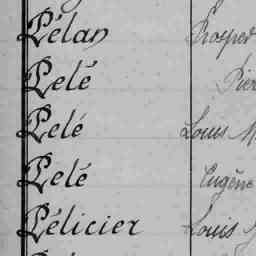 Pélan Prosper
Pelé Pier
Pelé Louis M
Pelé Eugène
Pélicier Louis